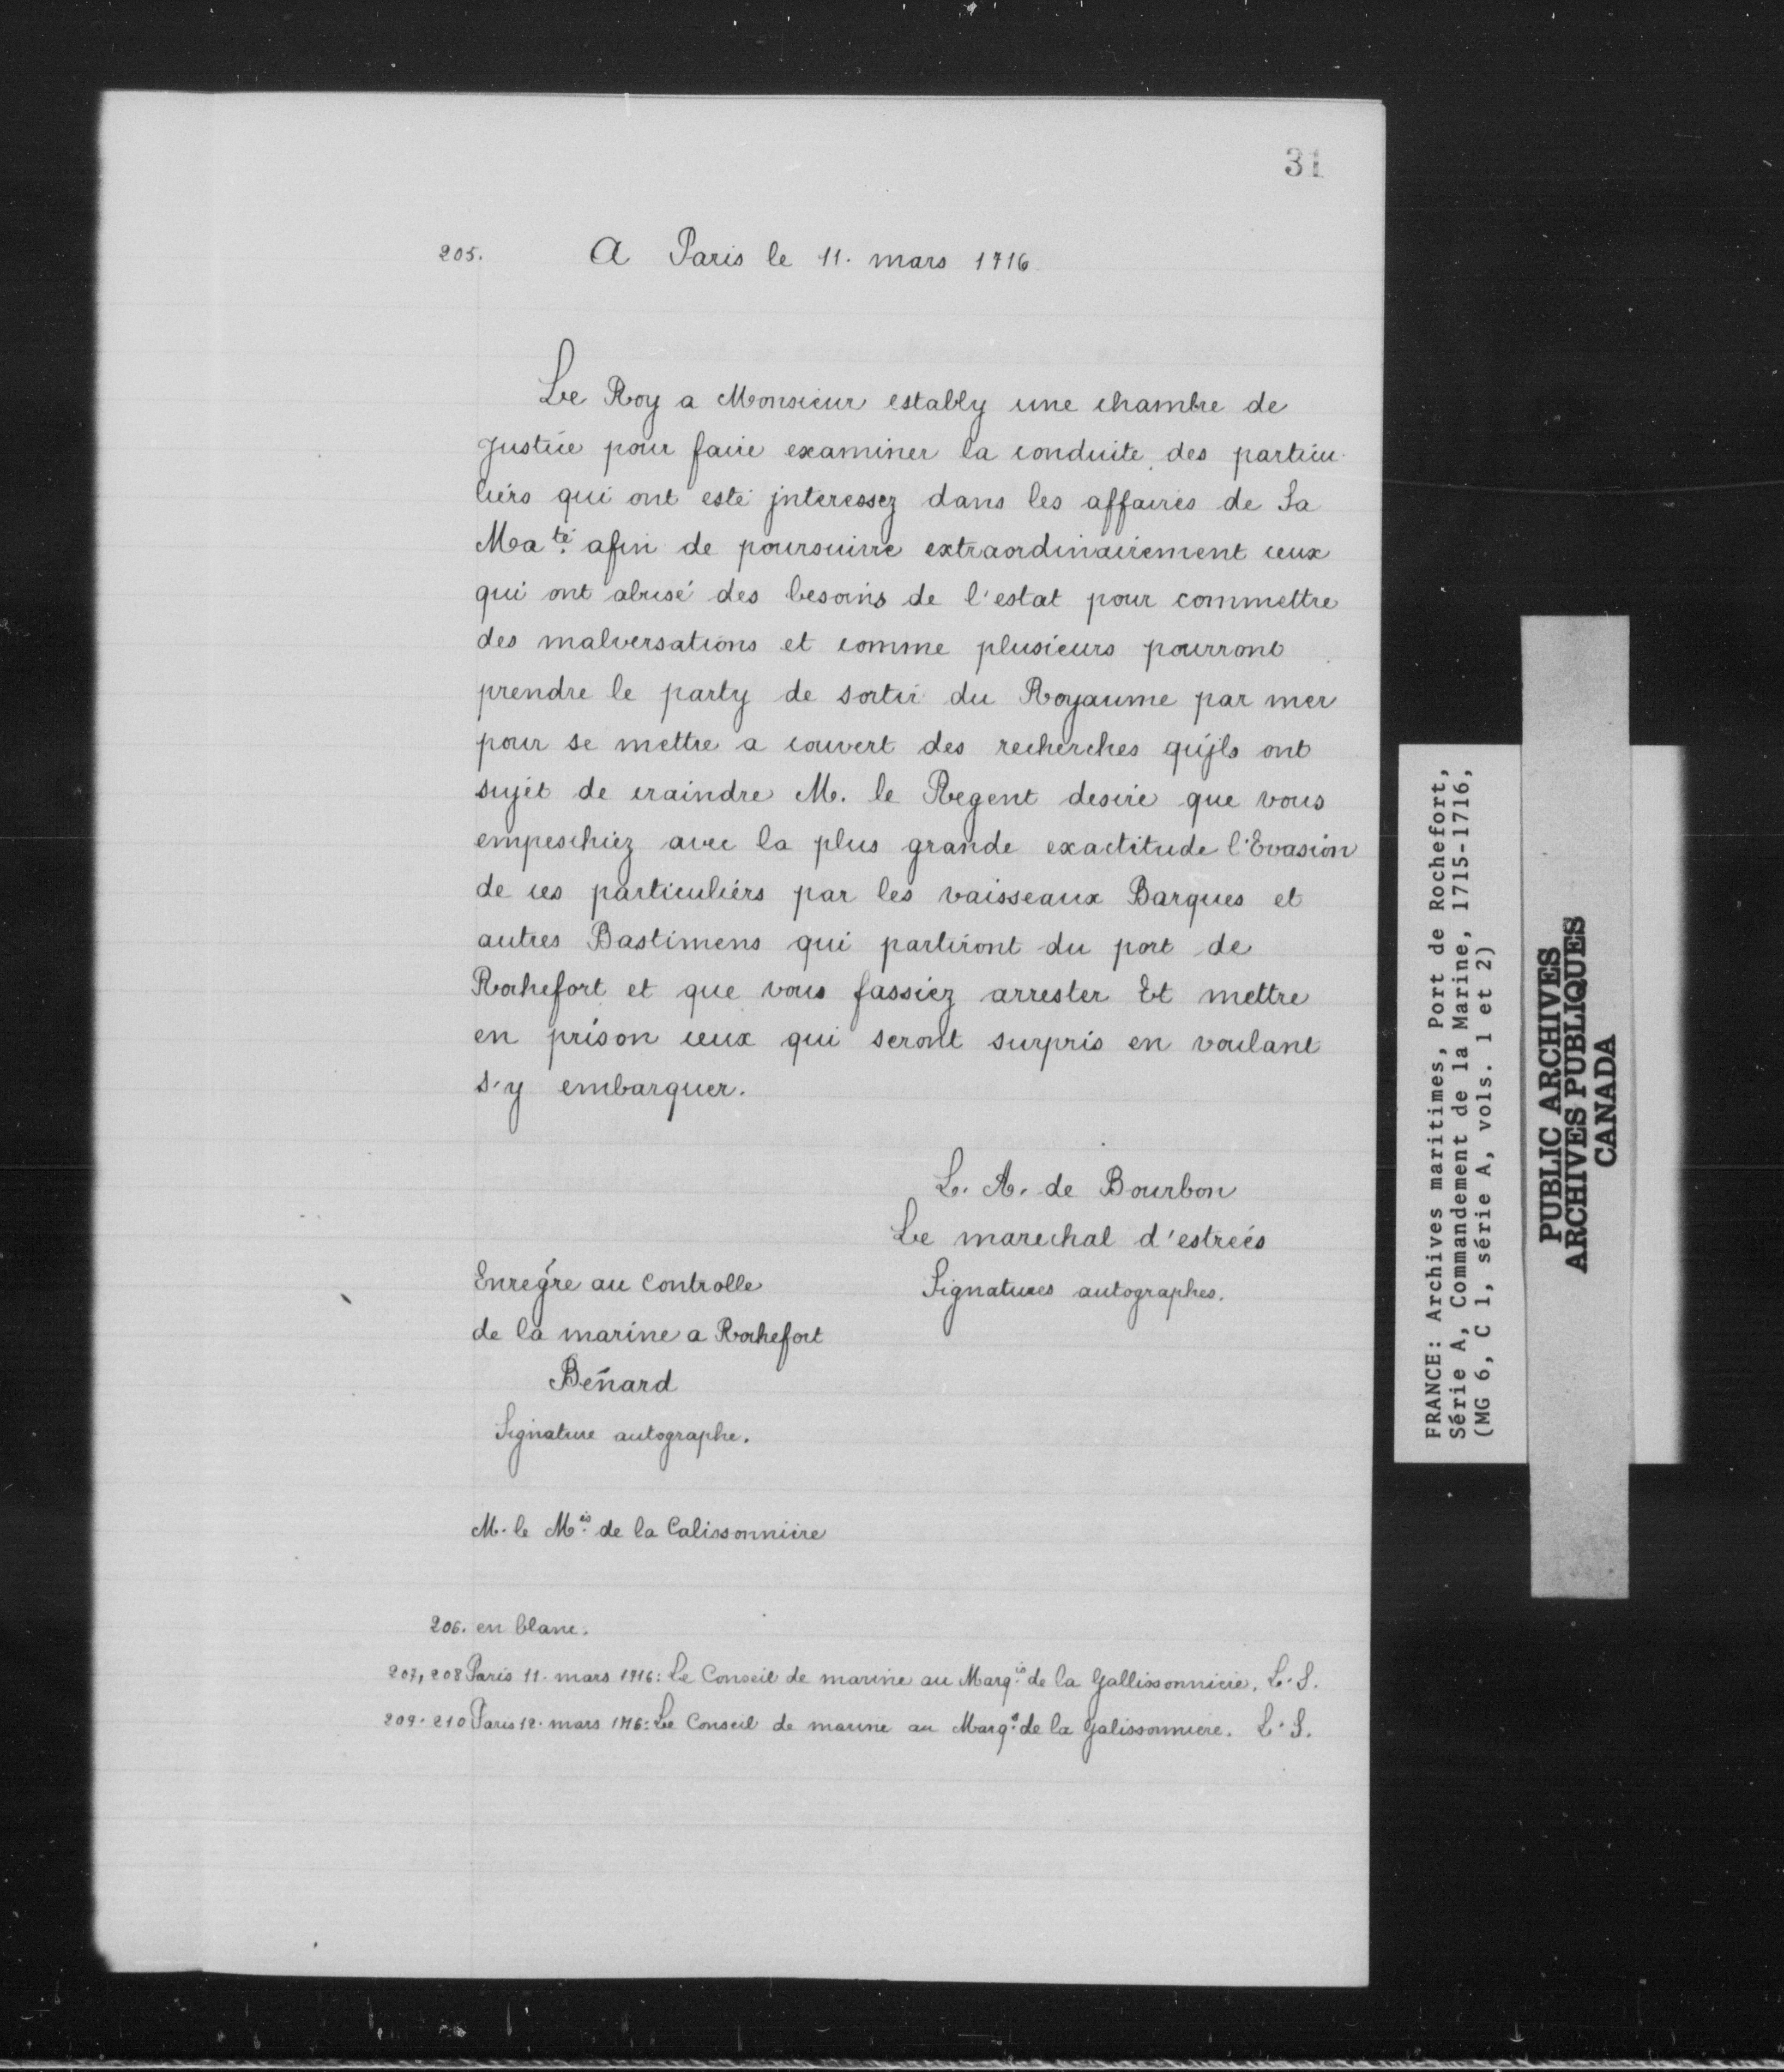 31
205. A Paris le 11. mars 1716
Le Roy a Monsieur estably une chambre de
Justice pour faire examiner la conduite des particu-
liérs qui ont esté jnteressez dans les affaires de Sa
Ma.té afin de poursuivre extraordinairement ceux
qui ont abusé des besoins de l'estat pour commettre
des malversations et comme plusieurs pourront
prendre le party de sortir du Royaume par mer
pour se mettre a couvert des recherches qu'jls ont
sujét de craindre M. le Regent desire que vous
empeschiez avec la plus grande exactitude l'Evasion
de ces particuliérs par les vaisseaux Barques et
autres Bastimens qui partiront du port de
Rochefort et que vous fassiez arrester Et mettre
en prison ceux qui seront surpris en voulant
s'y embarquer.
L. A. de Bourbon
Le marechal d'estrées
Signatures autographes.
Enregre au Controlle
de la marine a Rochefort
Bénard
Signature autographe.
M. le M.is de la Galissonniére
206. en blanc.
207, 208 Paris 11. mars 1716: Le Conseil de marine au Marq.is de la Gallissonniere. L. S.
209. 210 Paris 12. mars 1716: Le Conseil de marine au Marq.s de la Galissonniere. L. S.
FRANCE: Archives maritimes, Port de Rochefort,
Série A, Commandement de la Marine, 1715-1716,
(MG 6, C 1, série A, vols. 1 et 2)
PUBLIC ARCHIVES
ARCHIVES PUBLIQUES
CANADA